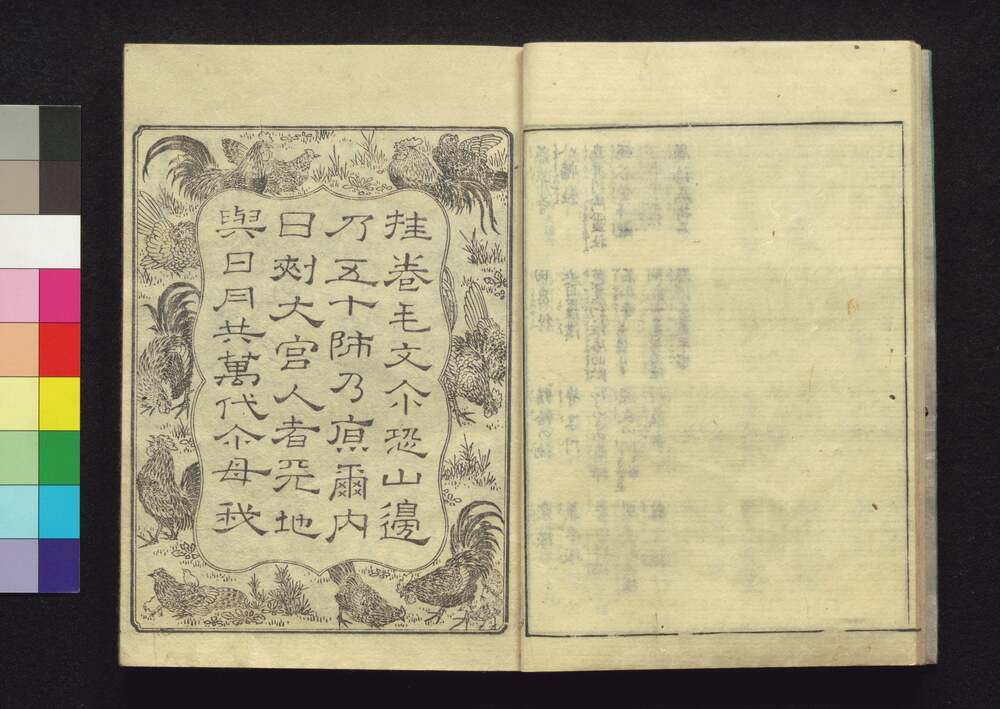 挂巻毛文尒恐山邊
乃五十師乃原爾内
日刺大宮人者天地
與日月共萬代尒母我